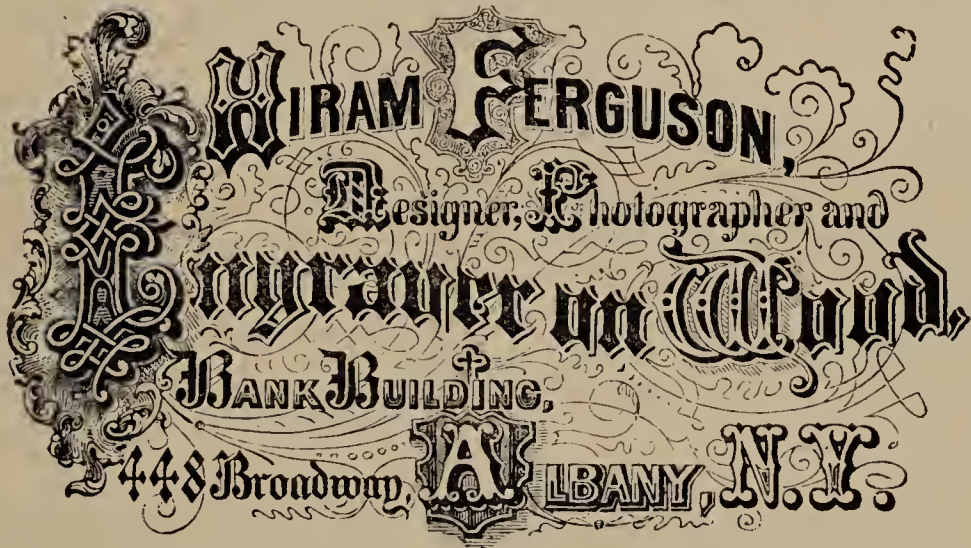 HIRAM FERGUSON,
Designer, Photographer and
Engraver on Wood,
BANK BUILDING,
448 Broadway, ALBANY, N.Y.